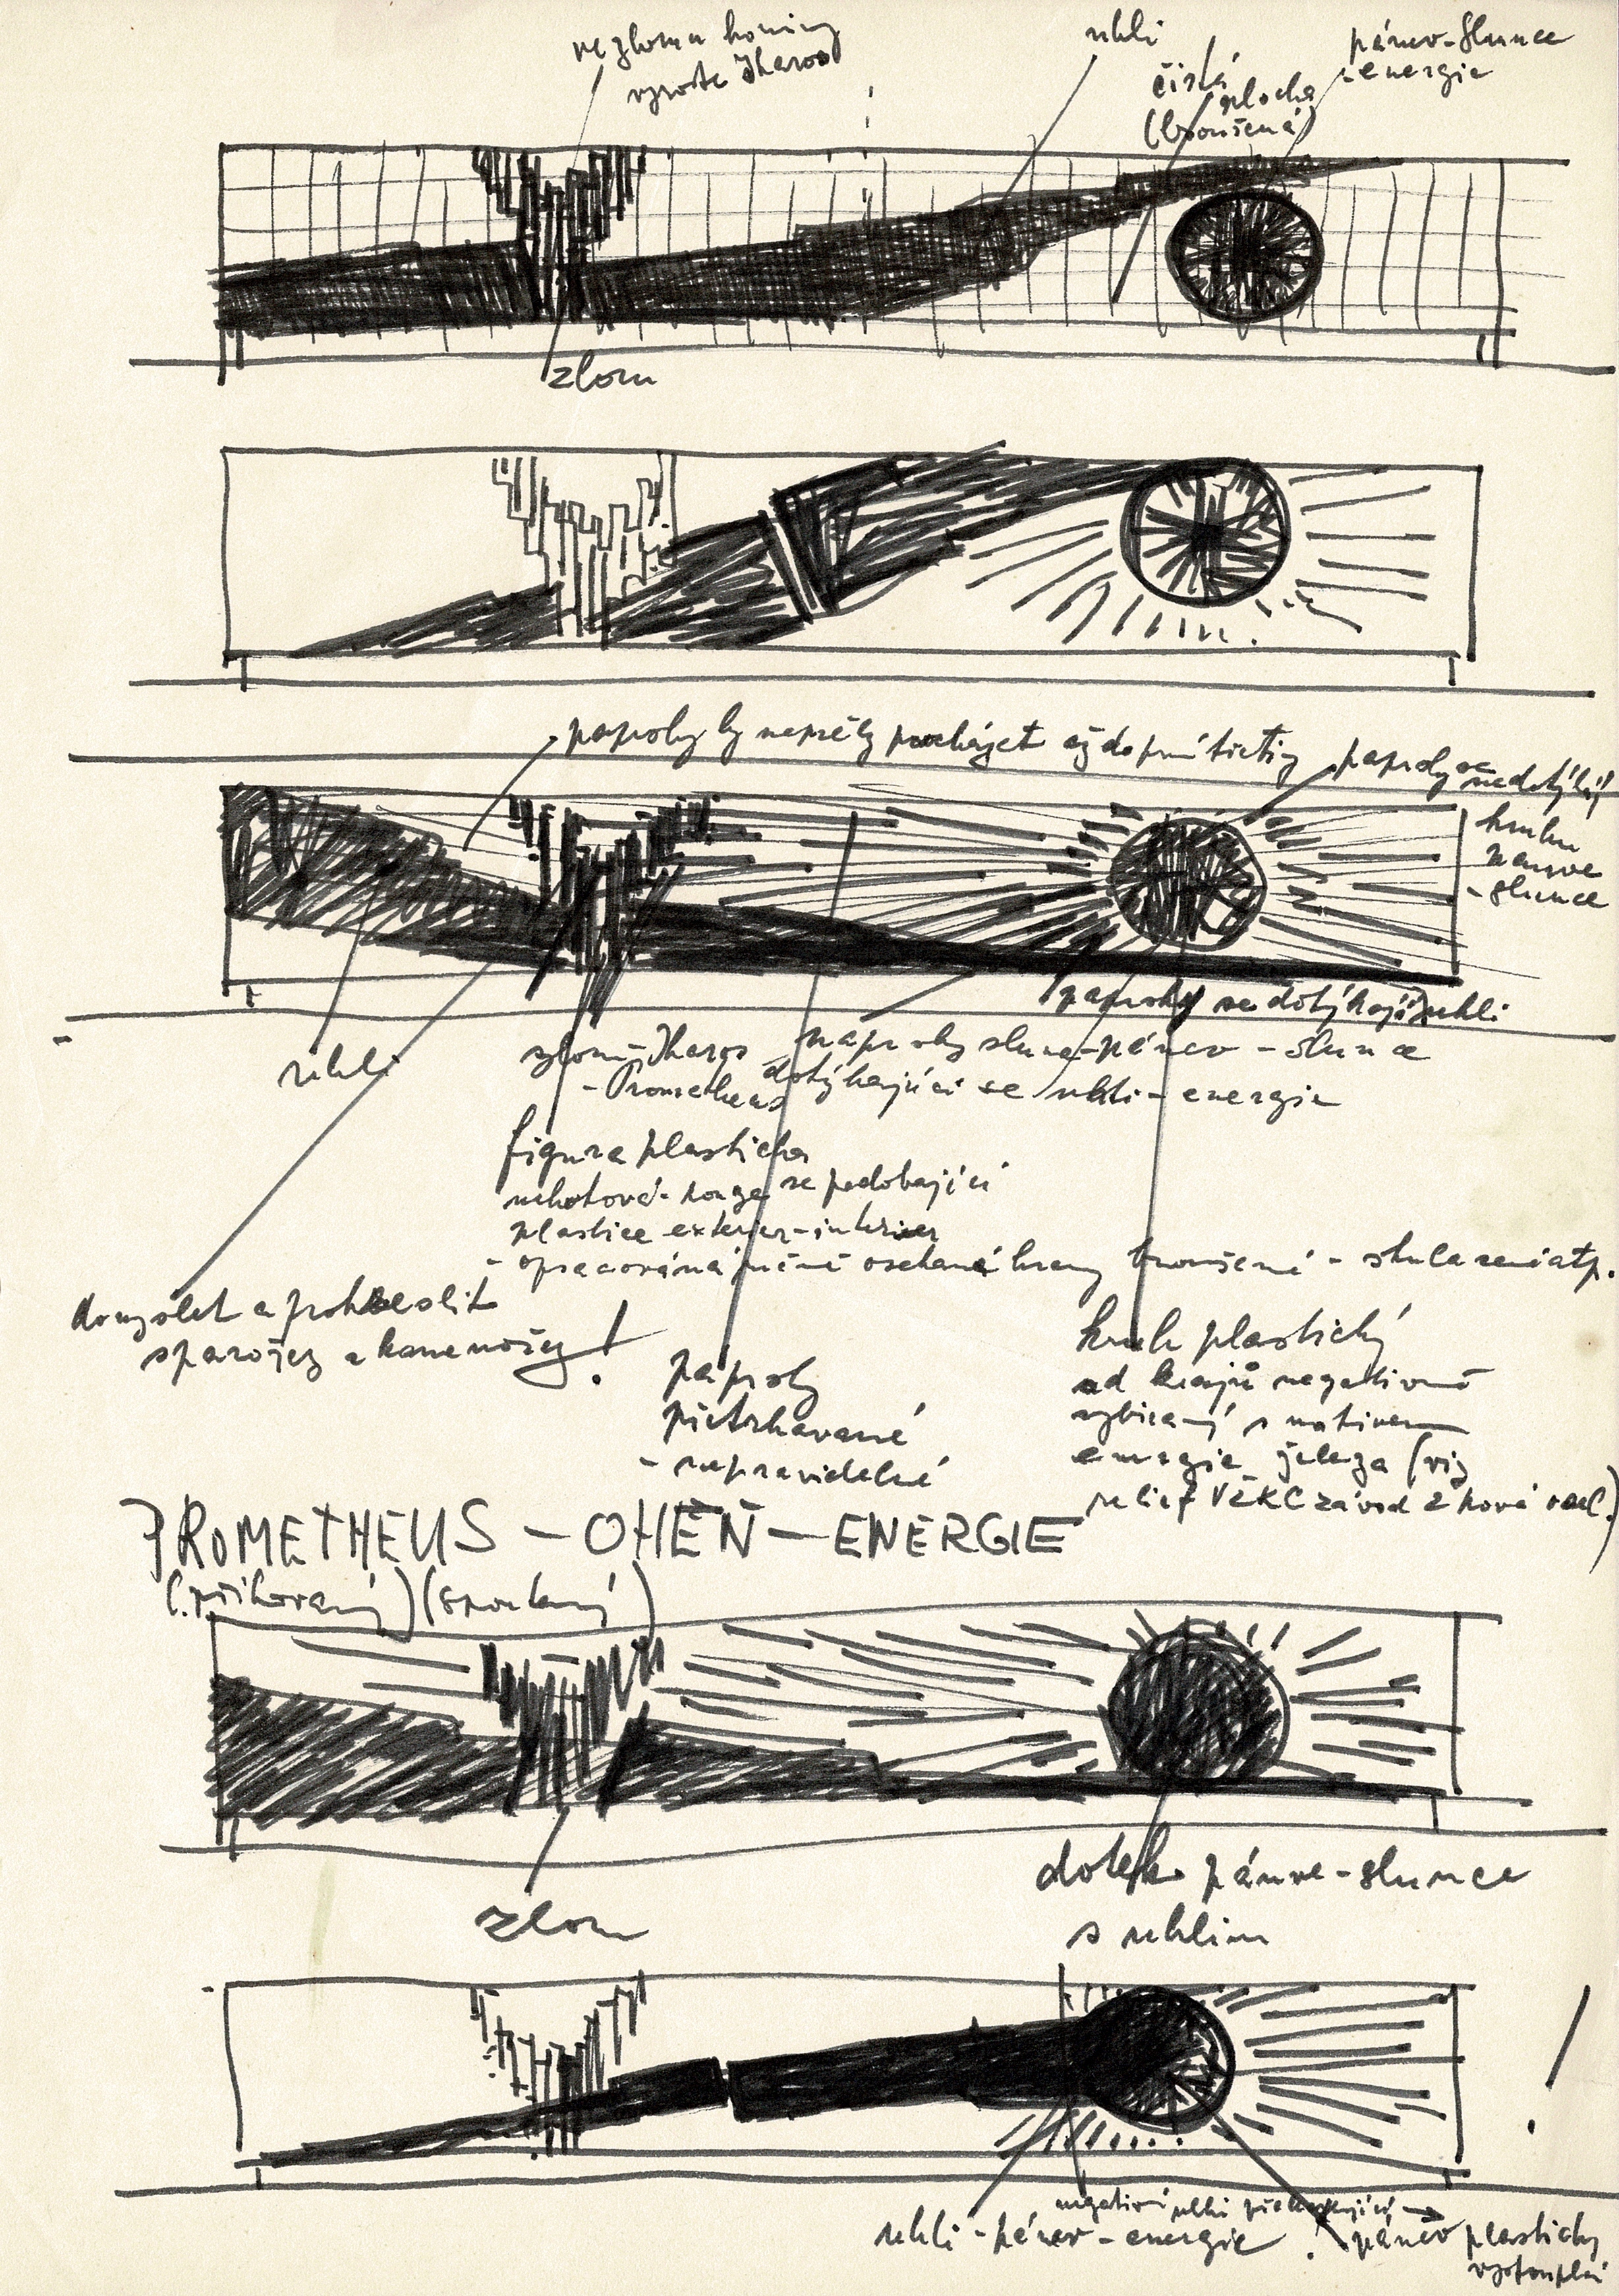 ve zlomu
vyroste Ikaros
uhlí
čistá
plocha
(broušená)
pánev-slunce
-energie
zlom
paprsky by neměly procházet až do
paprsky se
nedotýkají
kruhu
pánve
-slunce
paprsky se dotýkají uhlí
uhlí
zlom-Ikaros
-Prometheus
paprsky slunce-pánev-slunce
dotýkající se uhlí-energie
figura plastická
se podobající
plastice exterier-interier
- opracována osekané hrany broušené - skulacení atp.
domyslet a
sparořez a kamenořez !
paprsky
- nepravidelné
kruh plastický
od krajů negativně
vybíraný s motivem
energie železa (viz
relief VŽKG závod 2 nová ocel.)
PROMETHEUS – OHEŇ – ENERGIE
(přikovaný) (spoutaný)
zlom
dotek pánve-slunce
s uhlím
!
negativní uhlí
uhlí-pánev-energie
pánev plasticky
vystouplá